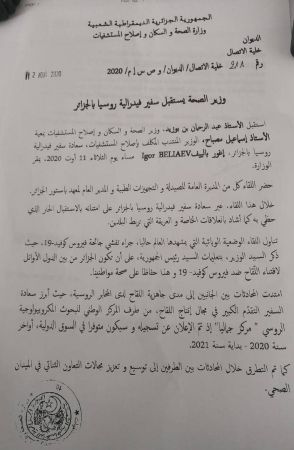 الجمهورية الجزائرية الديمقراطية الشعبية
وزارة الصحة و السكان و إصلاح المستشفيات
الديوان
خلية الاتصال
رقم 218 خلية الاتصال/ الديوان/ و ص س إ م/ 2020
12 AOUT 2020
وزير الصحة يستقبل سفير فيدرالية روسيا بالجزائر
استقبل الأستاذ عبد الرحمان بن بوزيد، وزير الصحة و السكان و إصلاح المستشفيات بمعية
الأستاذ إسماعيل مصباح، الوزير المنتدب المكلف بإصلاح المستشفيات، سعادة سفير فيدرالية
روسيا بالجزائر، إيغور بالييف Igor BELIAEV مساء يوم الثلاثاء 11 أوت 2020، بمقر
الوزارة.
حضر اللقاء كل من المديرة العامة للصيدلة و التجهيزات الطبية و المدير العام لمعهد باستور الجزائر.
خلال هذا اللقاء، عبر سعادة سفير فيدرالية روسيا بالجزائر على امتنانه بالاستقبال الحار الذي
حظي به كما أشاد بالعلاقات الخاصة و العريقة التي تربط البلدين.
تناول اللقاء الوضعية الوبائية التي يشهدها العالم حاليا، جراء تفشي جائحة فيروس كوفيد-19، حيث
ذكر السيد الوزير، بتعليمات السيد رئيس الجمهورية، على أن يكون الجزائر من بين الدول الأوائل
لاقتناء اللقاح ضد فيروس كوفيد- 19 و هذا حفاظا على صحة مواطنينا.
امتدت المحادثات بين الجانبين إلى مدى جاهزية اللقاح لدى المخابر الروسية، حيث أبرز سعادة
السفير التقدم الكبير في مجال إنتاج اللقاح، من طرف المركز الوطني للبحوث الميكروبيولوجية
الروسي " مركز جماليا" إذ تم الإعلان عن تسجيله و سيكون متوفرا في السوق الدولية، أواخر
سنة 2020 - بداية سنة 2021.
كما تم التطرق خلال المحادثات بين الطرفين إلى توسيع و تعزيز مجالات التعاون الثنائي في الميدان
الصحي.